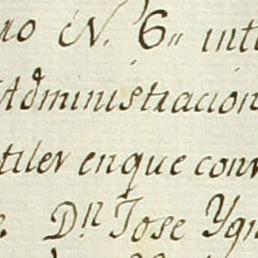 no N. 6,, int
Administracion
tiler enque conv
Dn Jose Ygn